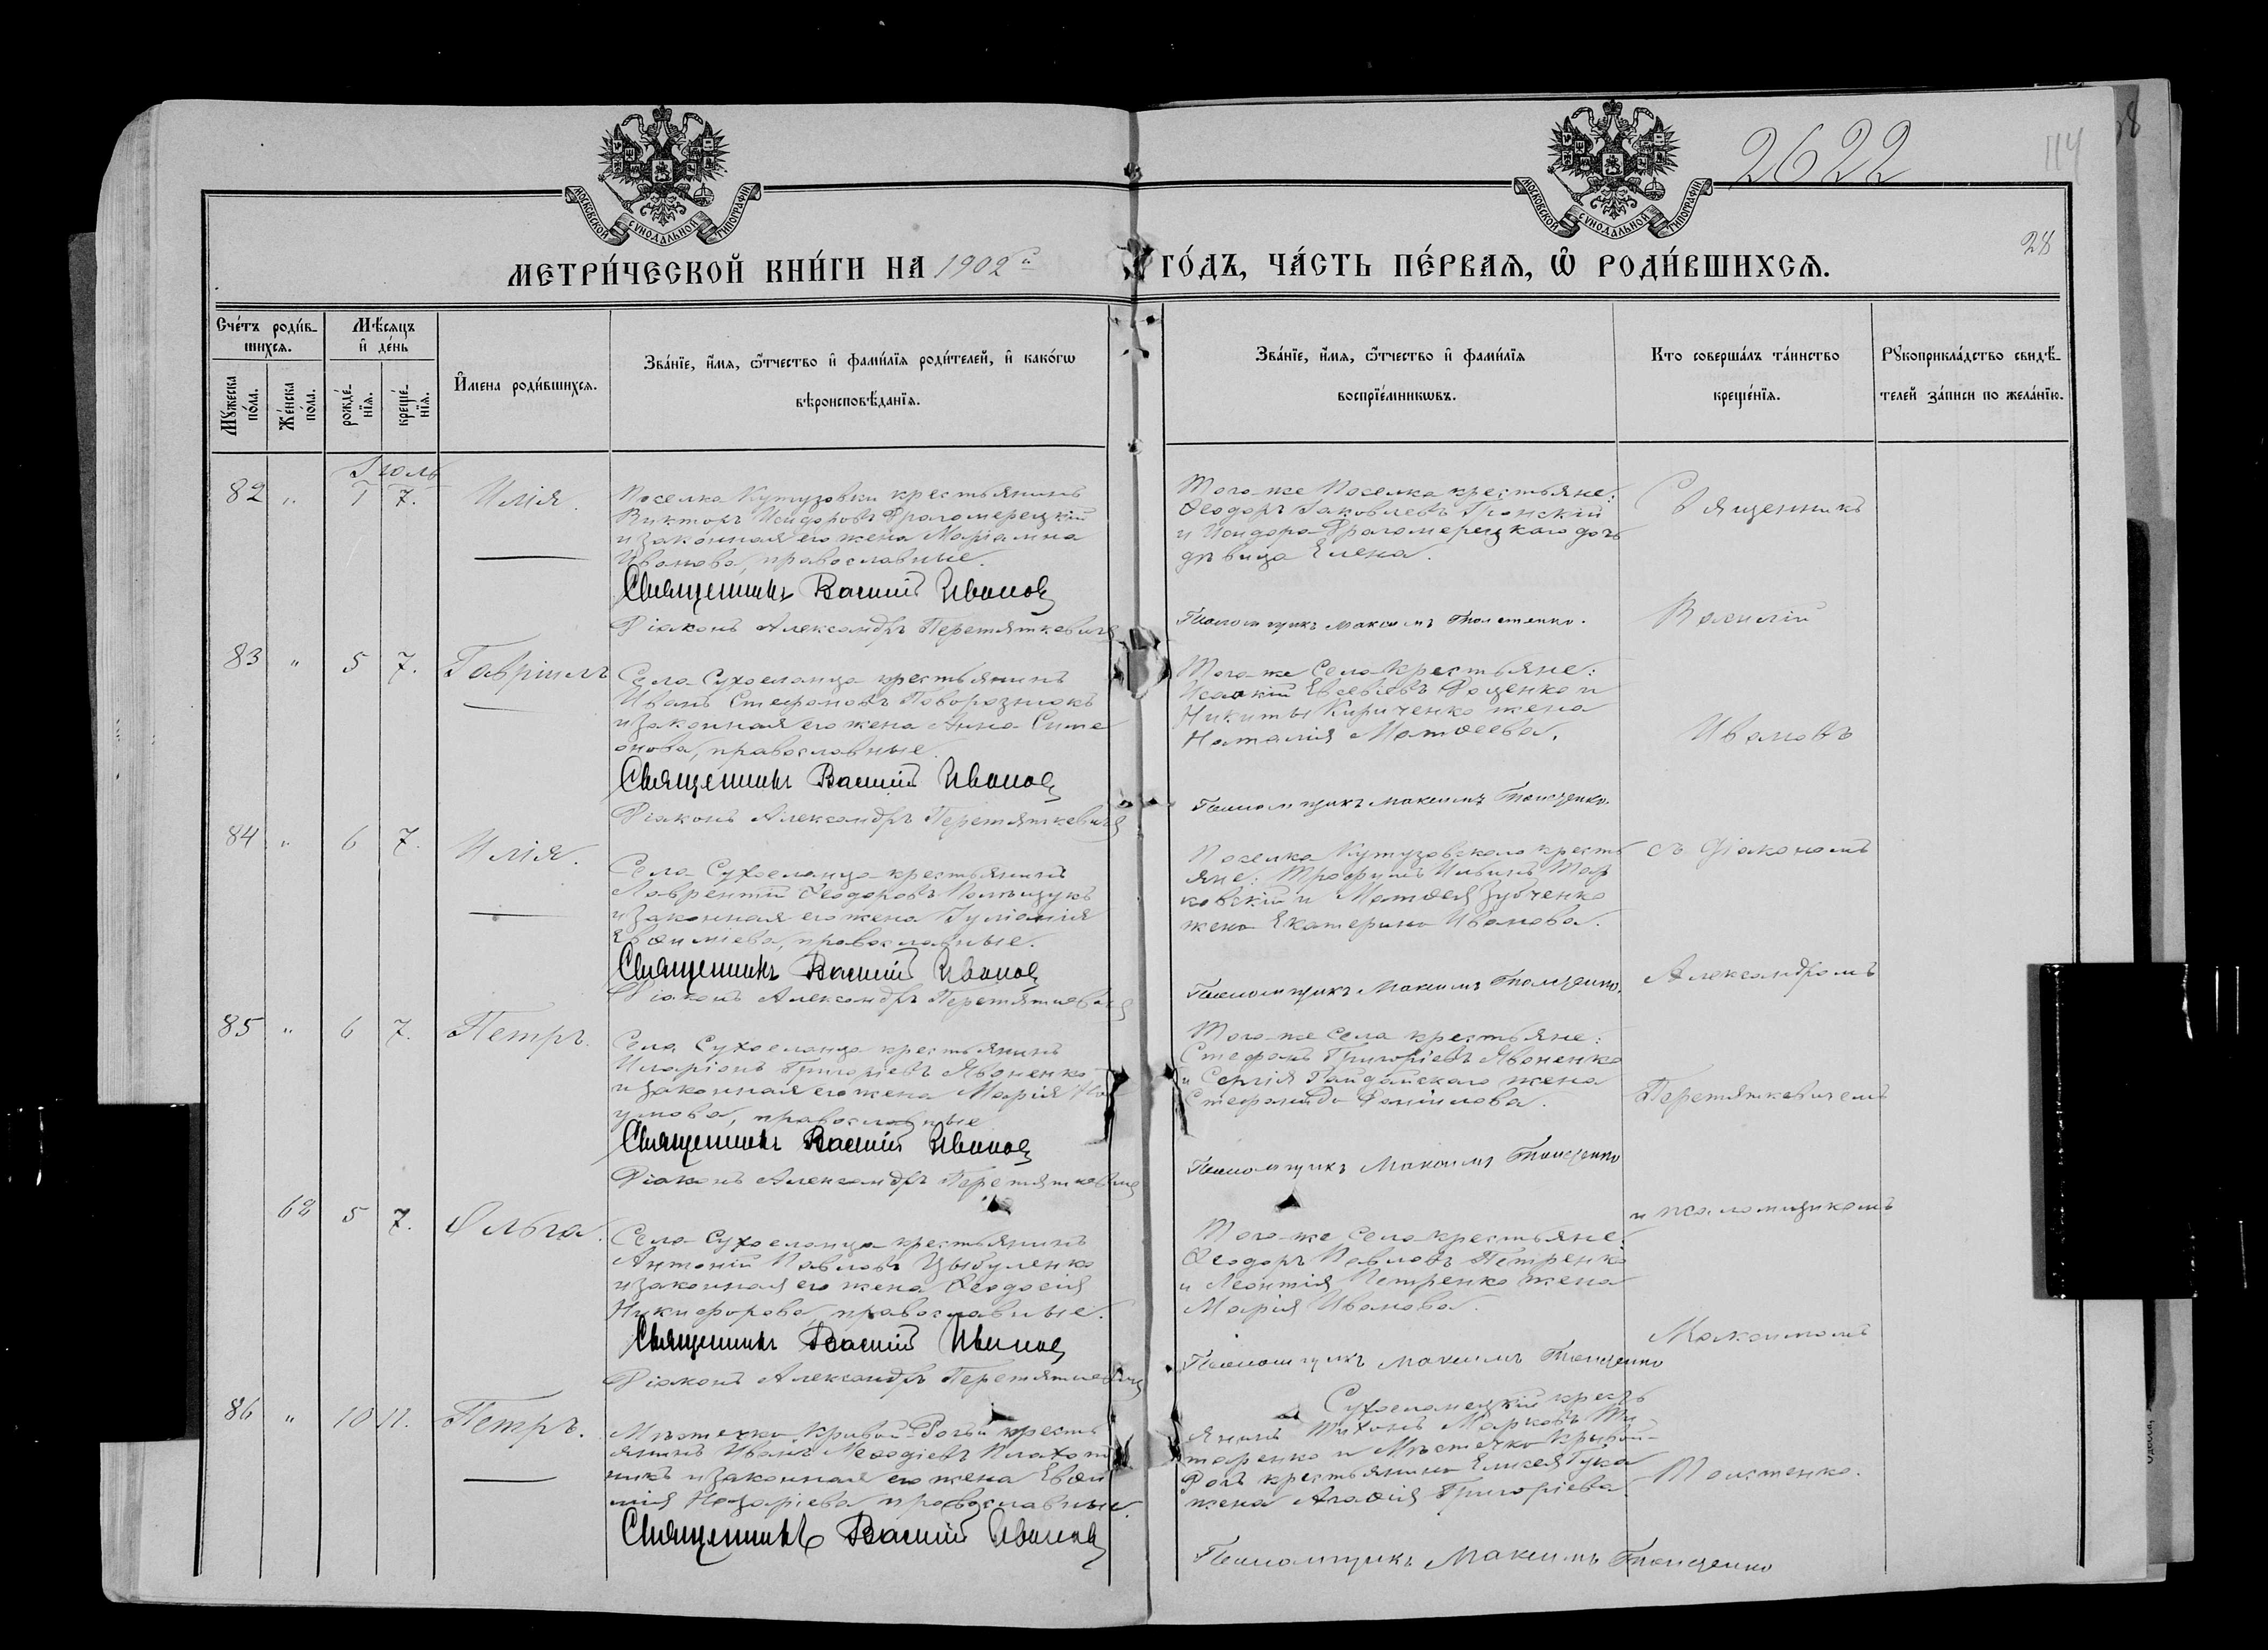 2622
114
28
МОСКОВСКОЙ СѴНОДАЛЬНОЙ ТИПОГРАФІИ
МОСКОВСКОЙ СѴНОДАЛЬНОЙ ТИПОГРАФІИ
МЕТРИ́ЧЕСКОЙ КНИ́ГИ НА 1902й ГО́ДЪ, ЧА́СТЬ ПЕ́РВАѦ, Ѡ҆ РОДИ́ВШИХСѦ.
Сче́тъ роди́в-
шихсѧ.
Мꙋ́жеска по́ла.
Же́нска по́ла.
Мѣ́сѧцъ
и҆ де́нь
рожде́-
нїѧ.
креще́-
нїѧ.
И҆мена роди́вшихсѧ.
Зва́нїе, и҆́мѧ, ѻ҆́тчество и҆ фами́лїѧ роди́телей, и҆ како́гѡ
вѣроисповѣ́данїѧ.
Зва́нїе, и҆́мѧ, ѻ҆́тчество и҆ фами́лїѧ
воспрїе́мникѡвъ.
Кто соверша́лъ та́инство
креще́нїѧ.
Рꙋкоприкла́дство свидѣ́-
телей за́писи по жела́нїю.
Іюль
82 " 1 7. Илія.
Поселка Кутузовки крестьянинъ
Викторъ Исидоровъ Драгомерецкій
и законная его жена Маріамна
Иванова, православные.
Священникъ Василій Ивановъ
Діаконъ Александръ Перетяткевичъ
Того-же Поселка крестьяне:
Ѳеодоръ Іаковлевъ
и Исидора Драгомерецкаго дочь
дѣвица Елена.
Псаломщикъ Максимъ Толстенко.
83 " 5 7. Гавріилъ
Села Сухоеланца крестьянинъ
Иванъ Стефановъ Поворознюкъ
и законная его жена Анна Симе
онова, православные.
Священникъ Василій Ивановъ
Діаконъ Александръ Перетяткевичъ
Того-же Села крестьяне:
Исаакій Евсевіевъ Доценко и
Никиты Кириченко жена
Наталія Матѳеева.
Псаломщикъ Максимъ Толстенко.
84 " 6 7. Илія.
Села Сухоеланца крестьянинъ
Лаврентій Ѳеодоровъ Полищукъ
и законная его жена Іуліанія
Евѳиміева, православные.
Священникъ Василій Ивановъ
Діаконъ Александръ Перетяткевичъ
Поселка Кутузовскаго кресть
яне: Трофимъ Ильинъ Мар
ковскій и Матѳея Зубченко
жена Екатерина Иванова.
Псаломщикъ Максимъ Толстенко.
85 " 6 7. Петръ.
Села Сухоеланца крестьянинъ
Иларіонъ Григоріевъ Явоненко
и законная его жена Марія На
умова, православные
Священникъ Василій Ивановъ
Діаконъ Александръ Перетяткевичъ
Того-же села крестьяне:
Стефанъ Григоріевъ Явоненко
и Сергія Гайдайскаго жена
Стефанида Даніилова.
Псаломщикъ Максимъ Толстенко
62 5 7. Ольга.
Села Сухоеланца крестьянинъ
Антоній Павловъ Цыбуленко
и законная его жена Ѳеодосія
Никифорова, православные.
Священникъ Василій Ивановъ
Діаконъ Александръ Перетяткевичъ
Того-же села крестьяне:
Ѳеодоръ Павловъ Петренко
и Леонтія Петренко жена
Марія Иванова.
Псаломщикъ Максимъ Толстенко
86 " 10 11. Петръ.
Мѣстечка Кривой-Рогъ кресть
янинъ Иванъ Меѳодіевъ Плахот
никъ и законная его жена Евѳи
мія Назаріева православные.
Священникъ Василій Ивановъ
Сухоеланецкій кресть
янинъ Тихонъ Марковъ Ти
таренко и Мѣстечка Кривой-
Рогъ крестьянина Елисея Гука
жена Агаѳія Григоріева.
Псаломщикъ Максимъ Толстенко
Священникъ
Василій
Ивановъ
съ діакономъ
Александромъ
Перетяткевичемъ
и псаломщикомъ
Максимомъ
Толстенко.